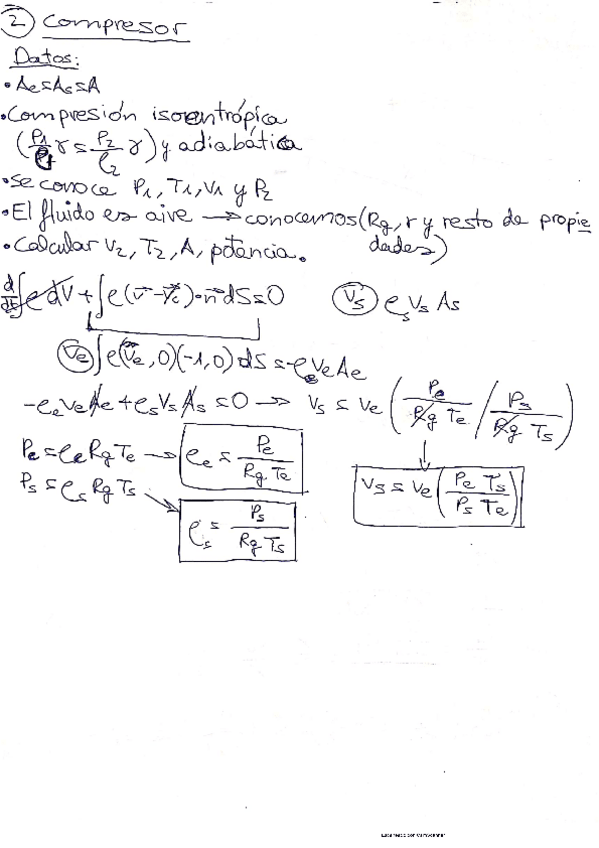 ② Compresor
Datos:
• Ae=As=A
• Compresión isoentrópica
(P1/ρ1^γ = P2/ρ2^γ) y adiabática
• Se conoce P1, T1, V1 y P2
• El fluido es aire → conocemos (Rg, γ y resto de propiedades)
• Calcular V2, T2, A, potencia.
d/dt ∫ρdV + ∫ρ(v⃗-v⃗c)·n⃗ dS = 0 (Vs) ρs Vs As
(Ve) ∫ρ(Ve, 0)(-1, 0) dS = -ρe Ve Ae
-ρe Ve Ae + ρs Vs As = 0 → Vs = Ve (Pe/(Rg Te) / Ps/(Rg Ts))
Pe = ρe Rg Te → ρe = Pe/(Rg Te)
Ps = ρs Rg Ts → ρs = Ps/(Rg Ts)
Vs = Ve (Pe Ts / Ps Te)